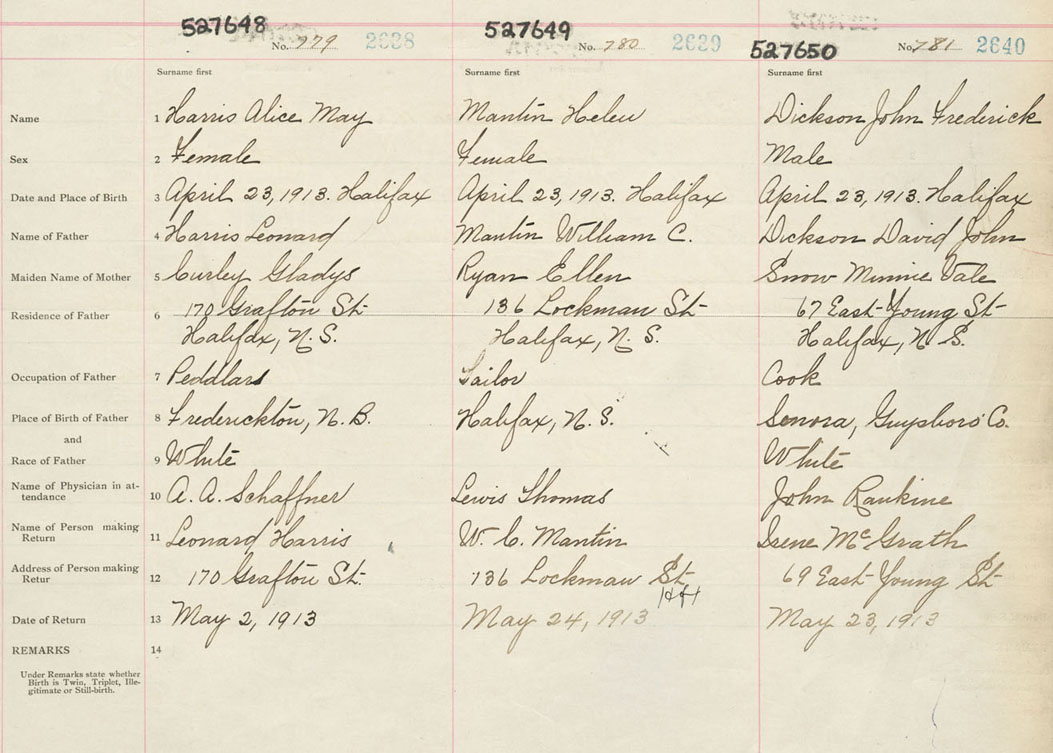 527648 527649 527650
No. 779 2638 No. 780 2639 No. 781 2640
Surname first Surname first Surname first
Name 1 Harris Alice May Mantin Helen Dickson John Frederick
Sex 2 Female Female Male
Date and Place of Birth 3 April 23, 1913. Halifax April 23, 1913. Halifax April 23, 1913. Halifax
Name of Father 4 Harris Leonard Mantin William C. Dickson David John
Maiden Name of Mother 5 Curley Gladys Ryan Ellen Snow Minnie Vale
Residence of Father 6 170 Grafton St 136 Lockman St 67 East Young St
Halifax, N.S. Halifax, N.S. Halifax, N.S.
Occupation of Father 7 Peddlar Cook
Place of Birth of Father 8 Frederickton, N.B. Halifax, N.S. Sonora, Guysboro Co.
and
Race of Father 9 White White
Name of Physician in at-
tendance 10 A. A. Schaffner Lewis Thomas John Rankine
Name of Person making
Return 11 Leonard Harris W. C. Mantin Irene McGrath
Address of Person making
Retur 12 170 Grafton St. 136 Lockman St 69 East Young St
Hfx
Date of Return 13 May 2, 1913 May 24, 1913 May 23, 1913
REMARKS 14
Under Remarks state whether
Birth is Twin, Triplet, Ille-
gitimate or Still-birth.